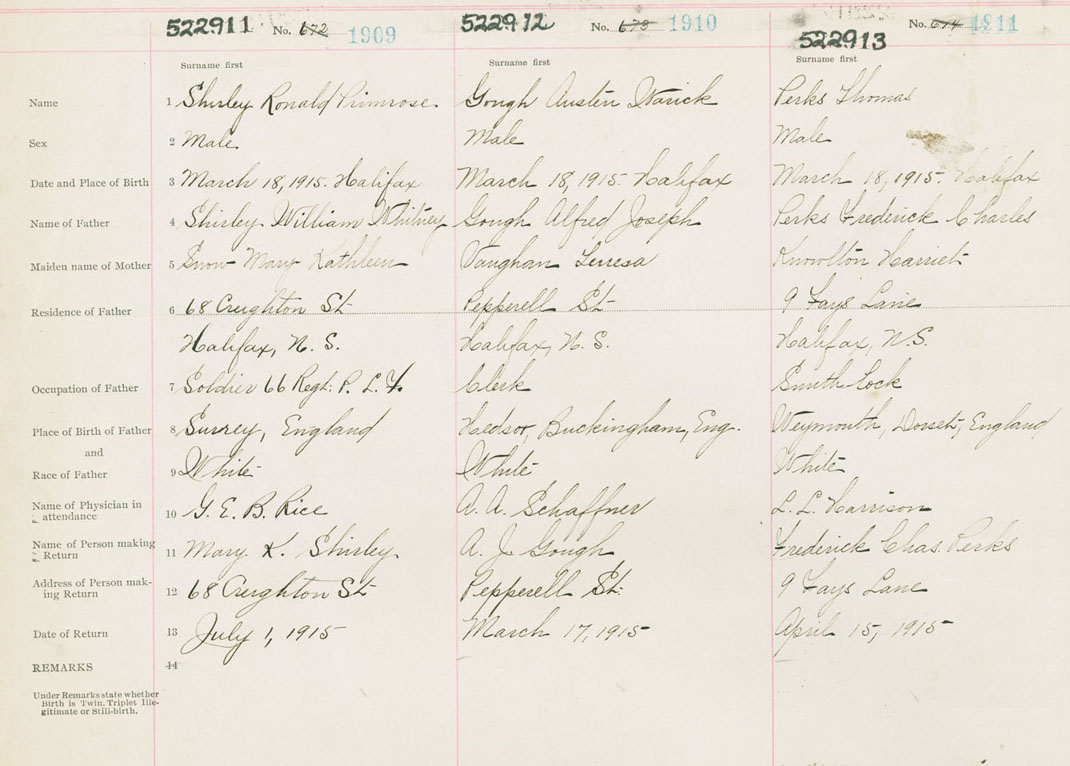 522911 No. 672 1909 522912 No. 673 1910 522913 No. 674 1911
Surname first Surname first Surname first
Name 1 Shirley Ronald Primrose. Gough Austin Warick Perks Thomas
Sex 2 Male. Male Male
Date and Place of Birth 3 March 18, 1915. Halifax March 18, 1915. Halifax March 18, 1915. Halifax
Name of Father 4 Shirley William Whitney Gough Alfred Joseph Perks Frederick Charles
Maiden name of Mother 5 Snow Mary Kathleen Vaughan Terresa Knowlton Harriet
Residence of Father 6 68 Creighton St Pepperell St 9 Fays Lane
Halifax, N. S. Halifax, N. S. Halifax, N.S.
Occupation of Father 7 Soldier 66 Regt. P. L. F. Clerk Smith Lock
Place of Birth of Father 8 Surrey, England Hedsor, Buckingham, Eng. Weymouth, Dorset, England
and
Race of Father 9 White White White
Name of Physician in
attendance 10 G. E. B. Rice A. A. Schaffner L. L. Harrison
Name of Person making
Return 11 Mary K. Shirley. A. J. Gough Frederick Chas. Perks
Address of Person mak-
ing Return 12 68 Creighton St Pepperell St. 9 Fays Lane
Date of Return 13 July 1, 1915 March 17, 1915 April 15, 1915
REMARKS 14
Under Remarks state whether
Birth is Twin. Triplet Ille-
gitimate or Still-birth.